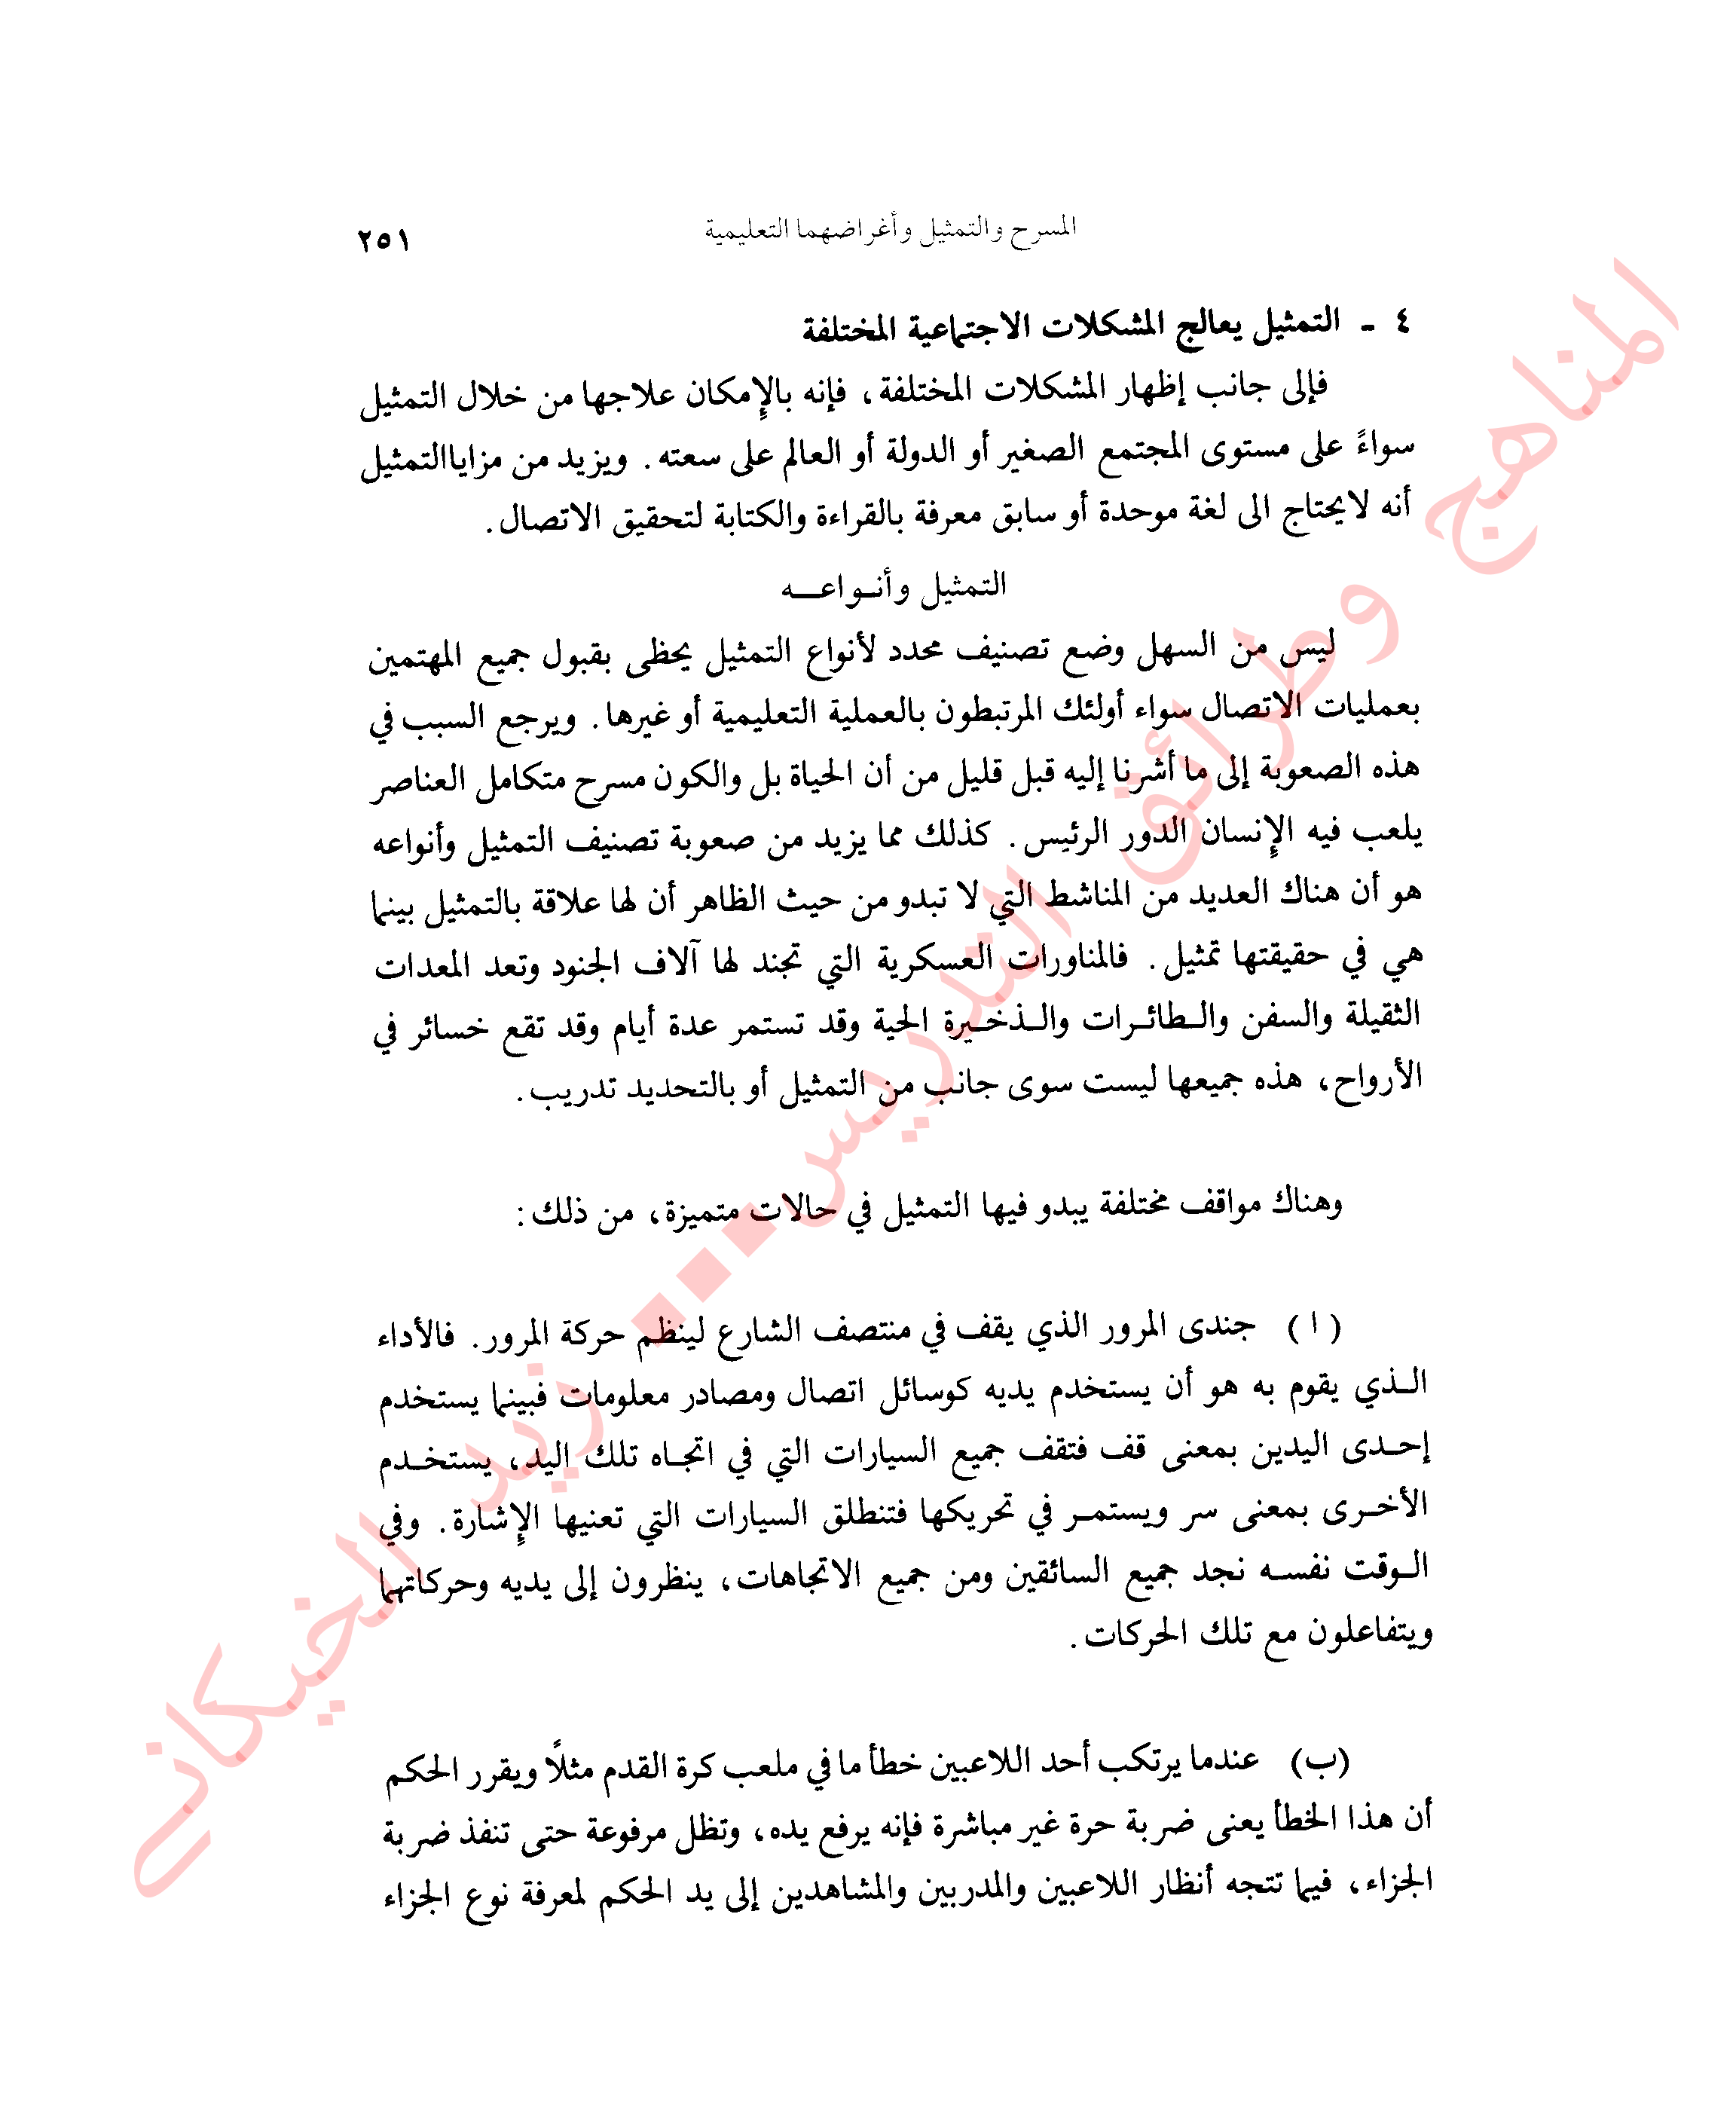 المسرح والتمثيل وأغراضهما التعليمية ٢٥١
٤ - التمثيل يعالج المشكلات الاجتماعية المختلفة
فإلى جانب إظهار المشكلات المختلفة، فإنه بالإمكان علاجها من خلال التمثيل
سواءً على مستوى المجتمع الصغير أو الدولة أو العالم على سعته. ويزيد من مزاياالتمثيل
أنه لايحتاج الى لغة موحدة أو سابق معرفة بالقراءة والكتابة لتحقيق الاتصال.
التمثيل وأنـواعـــه
ليس من السهل وضع تصنيف محدد لأنواع التمثيل يحظى بقبول جميع المهتمين
بعمليات الاتصال سواء أولئك المرتبطون بالعملية التعليمية أو غيرها. ويرجع السبب في
هذه الصعوبة إلى ما أشرنا إليه قبل قليل من أن الحياة بل والكون مسرح متكامل العناصر
يلعب فيه الإنسان الدور الرئيس. كذلك مما يزيد من صعوبة تصنيف التمثيل وأنواعه
هو أن هناك العديد من المناشط التي لا تبدو من حيث الظاهر أن لها علاقة بالتمثيل بينما
هي في حقيقتها تمثيل. فالمناورات العسكرية التي تجند لها آلاف الجنود وتعد المعدات
الثقيلة والسفن والـطائـرات والـذخـيرة الحية وقد تستمر عدة أيام وقد تقع خسائر في
الأرواح، هذه جميعها ليست سوى جانب من التمثيل أو بالتحديد تدريب.
وهناك مواقف مختلفة يبدو فيها التمثيل في حالات متميزة، من ذلك:
(ا) جندى المرور الذي يقف في منتصف الشارع لينظم حركة المرور. فالأداء
الـذي يقوم به هو أن يستخدم يديه كوسائل اتصال ومصادر معلومات فبينما يستخدم
إحـدى اليدين بمعنى قف فتقف جميع السيارات التي في اتجـاه تلك اليد، يستخـدم
الأخـرى بمعنى سر ويستمـر في تحريكها فتنطلق السيارات التي تعنيها الإشارة. وفي
الـوقت نفسـه نجد جميع السائقين ومن جميع الاتجاهات، ينظرون إلى يديه وحركاتهما
ويتفاعلون مع تلك الحركات.
(ب) عندما يرتكب أحد اللاعبين خطأ ما في ملعب كرة القدم مثلاً ويقرر الحكم
أن هذا الخطأ يعنى ضربة حرة غير مباشرة فإنه يرفع يده، وتظل مرفوعة حتى تنفذ ضربة
الجزاء، فيما تتجه أنظار اللاعبين والمدربين والمشاهدين إلى يد الحكم لمعرفة نوع الجزاء
المناهج وطرائق التدريس... زيد الخيكاني